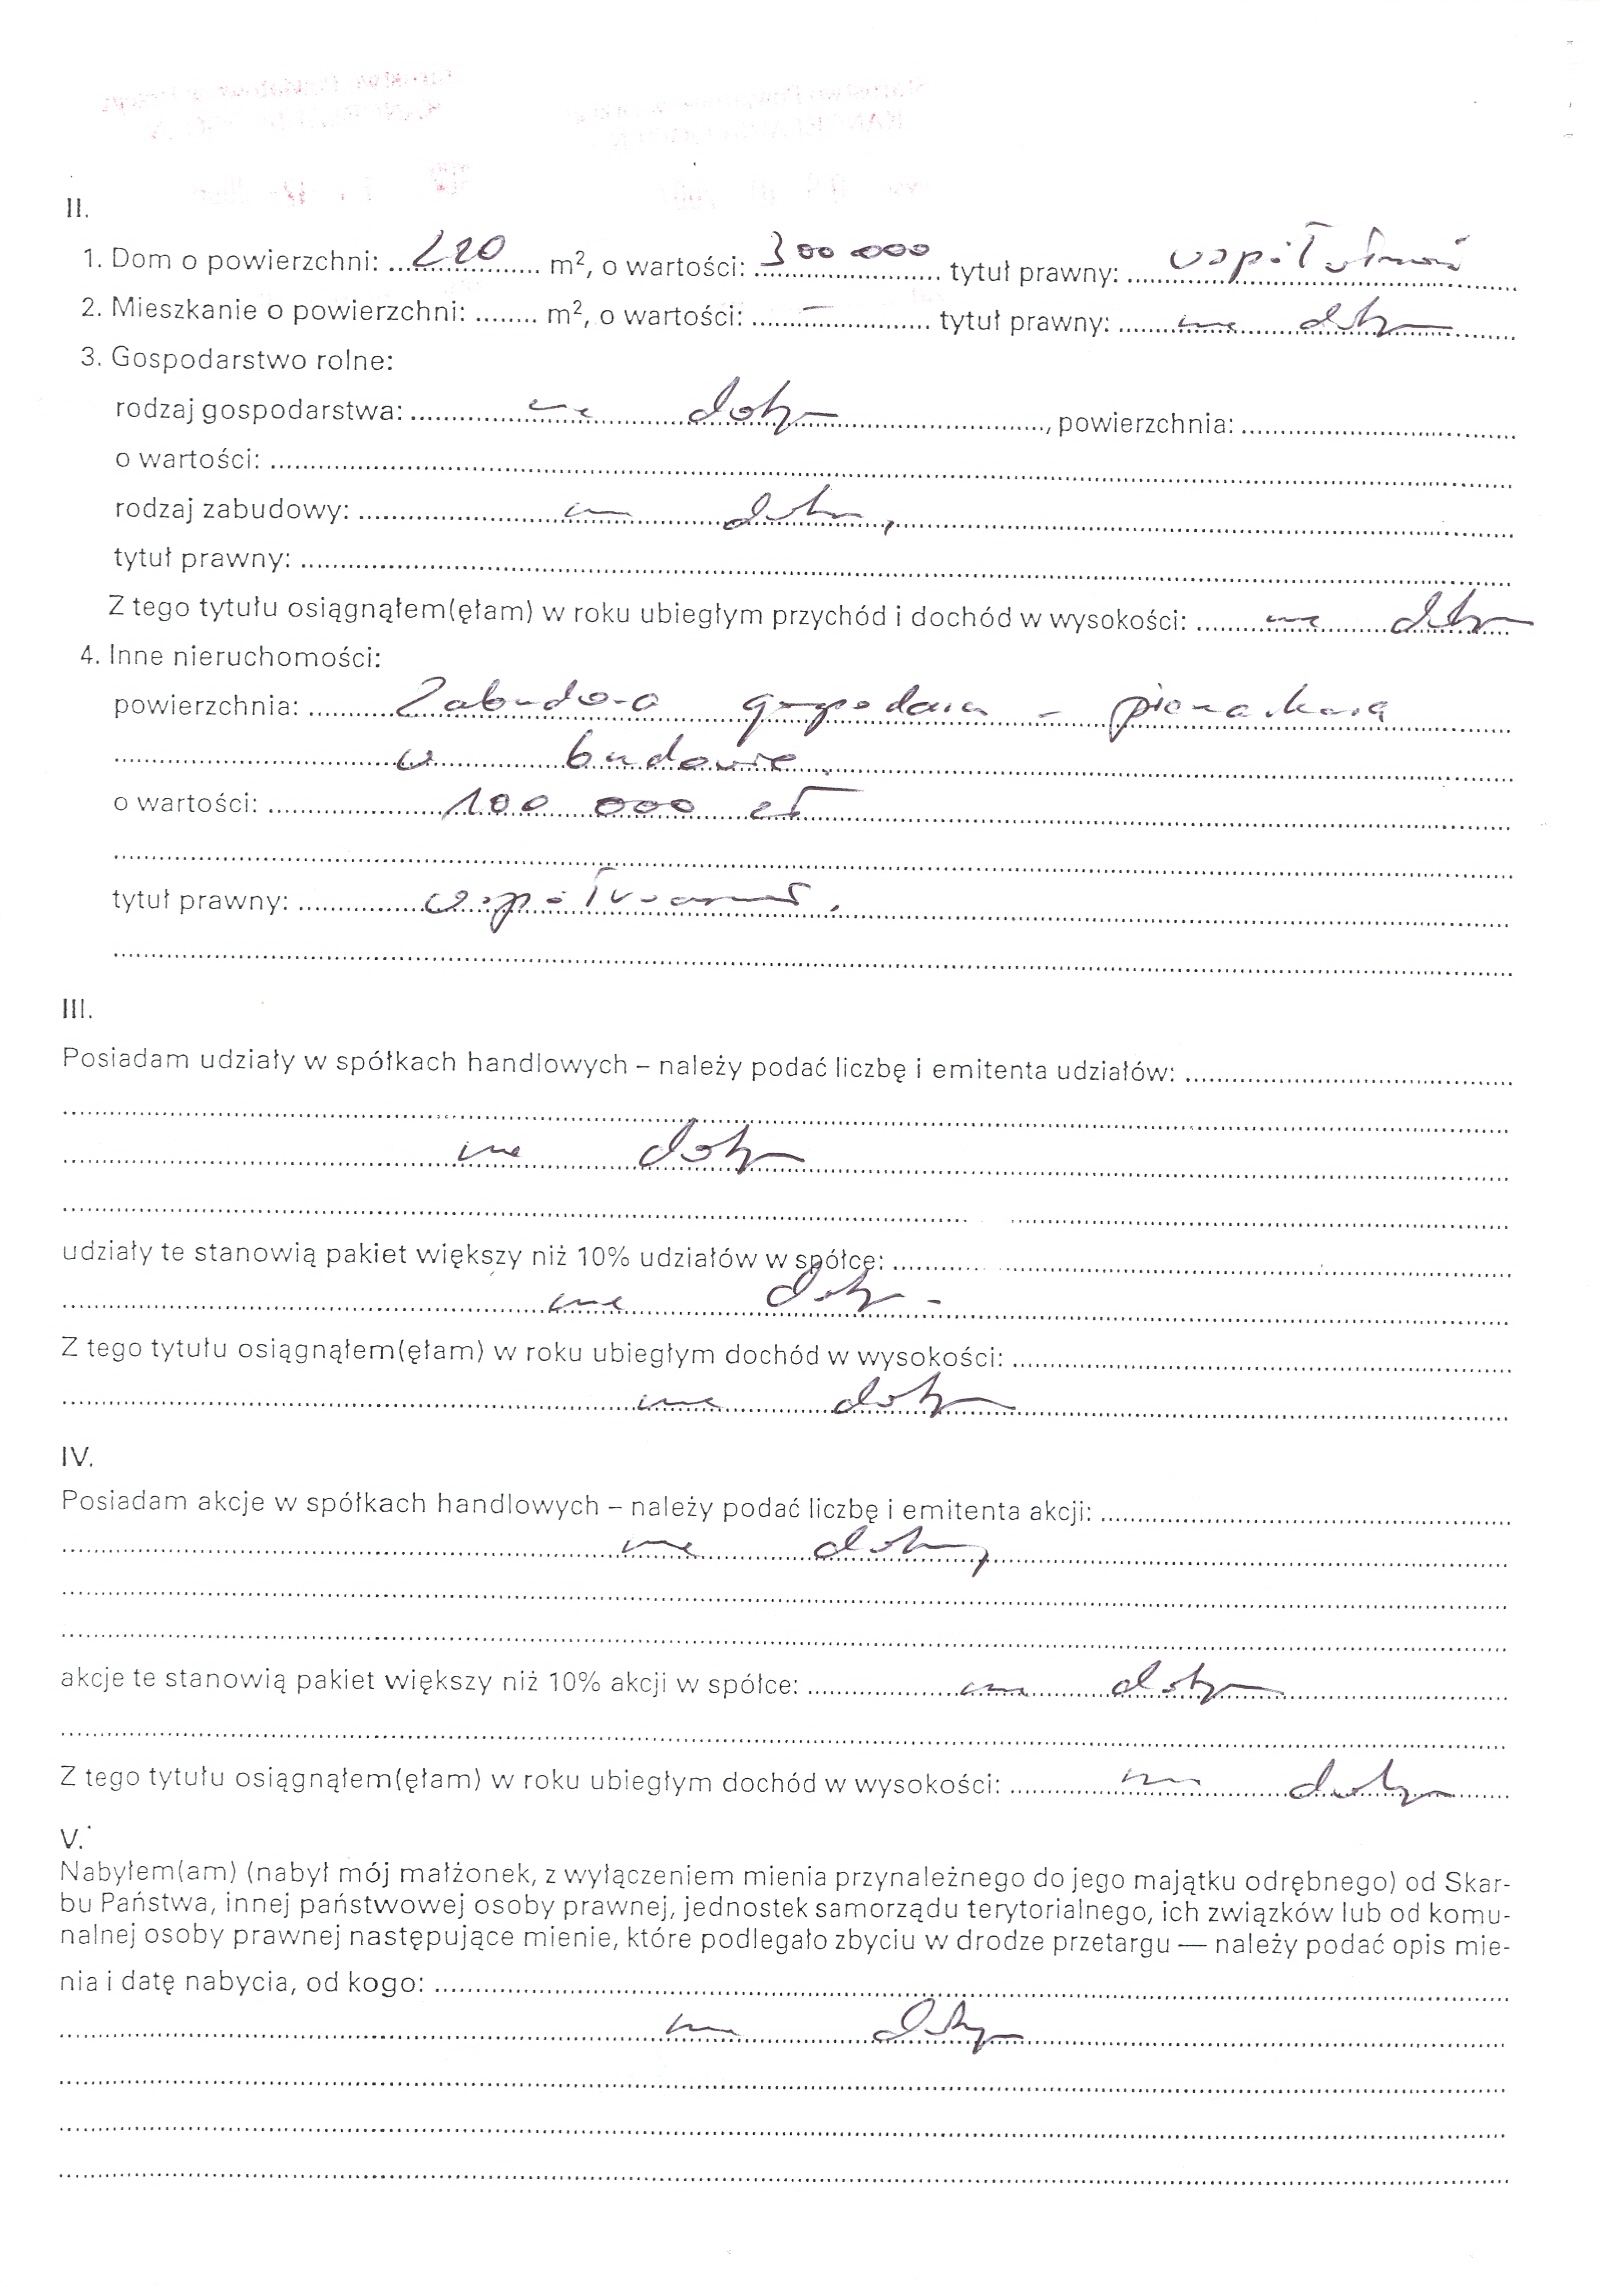 II.
1. Dom o powierzchni: 220 m², o wartości: 300 000 tytuł prawny: współwłasność
2. Mieszkanie o powierzchni: ........ m², o wartości: – tytuł prawny: nie dotyczy
3. Gospodarstwo rolne:
rodzaj gospodarstwa: nie dotyczy, powierzchnia:
o wartości:
rodzaj zabudowy: nie dotyczy
tytuł prawny:
Z tego tytułu osiągnąłem(ęłam) w roku ubiegłym przychód i dochód w wysokości: nie dotyczy
4. Inne nieruchomości:
powierzchnia: Zabudowa gospodarcza –
w budowie
o wartości: 100 000 zł
tytuł prawny: współwłasność
III.
Posiadam udziały w spółkach handlowych – należy podać liczbę i emitenta udziałów:
nie dotyczy
udziały te stanowią pakiet większy niż 10% udziałów w spółce:
nie dotyczy
Z tego tytułu osiągnąłem(ęłam) w roku ubiegłym dochód w wysokości:
nie dotyczy
IV.
Posiadam akcje w spółkach handlowych – należy podać liczbę i emitenta akcji:
nie dotyczy
akcje te stanowią pakiet większy niż 10% akcji w spółce: nie dotyczy
Z tego tytułu osiągnąłem(ęłam) w roku ubiegłym dochód w wysokości: nie dotyczy
V.
Nabyłem(am) (nabył mój małżonek, z wyłączeniem mienia przynależnego do jego majątku odrębnego) od Skar-
bu Państwa, innej państwowej osoby prawnej, jednostek samorządu terytorialnego, ich związków lub od komu-
nalnej osoby prawnej następujące mienie, które podlegało zbyciu w drodze przetargu — należy podać opis mie-
nia i datę nabycia, od kogo:
nie dotyczy